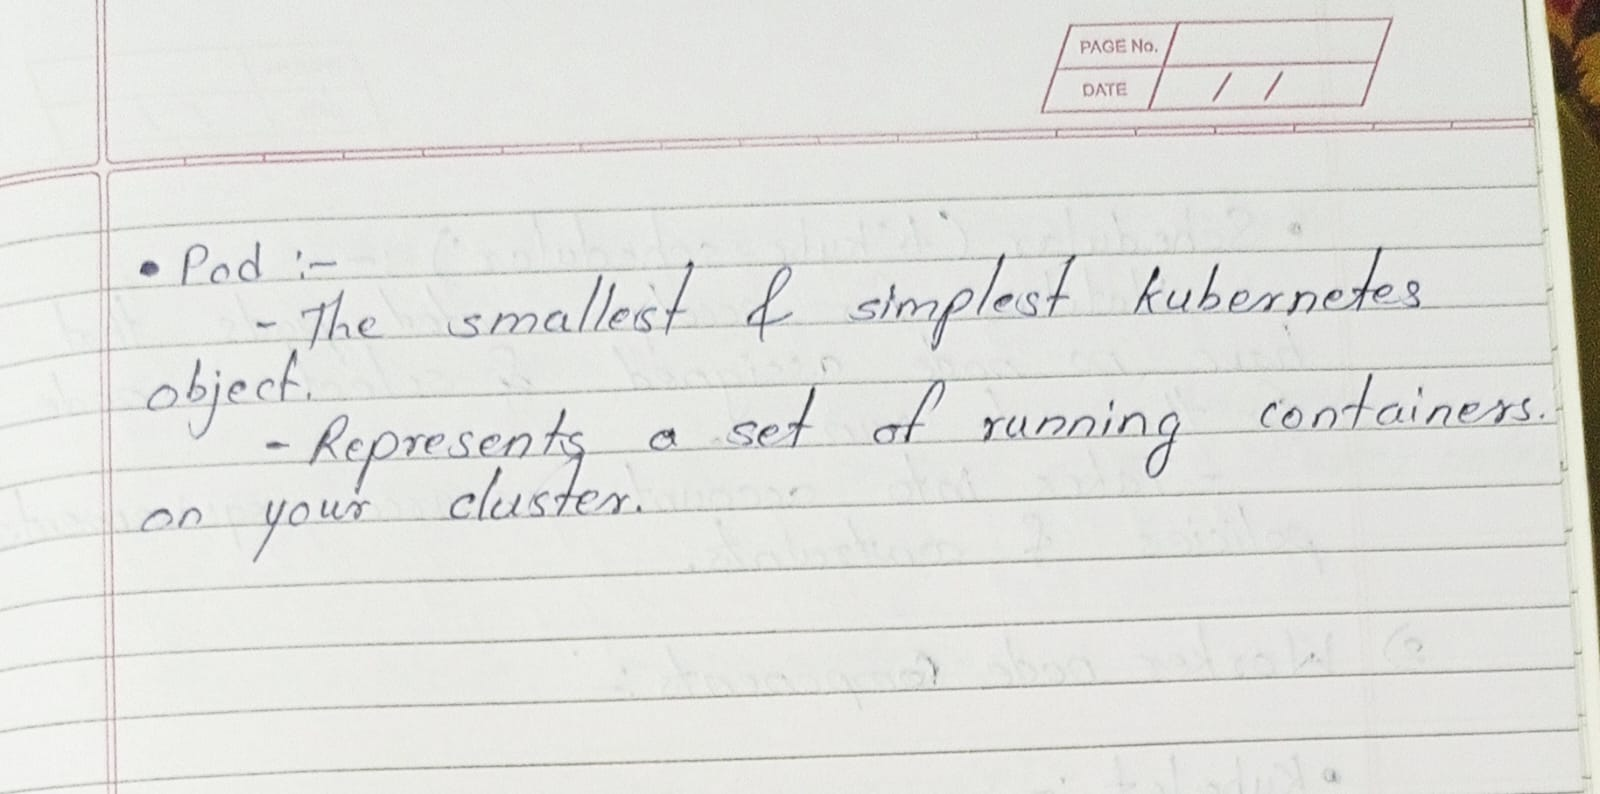 PAGE No.
DATE / /
• Pod :-
- The smallest & simplest kubernetes
object.
- Represents a set of running containers.
on your cluster.